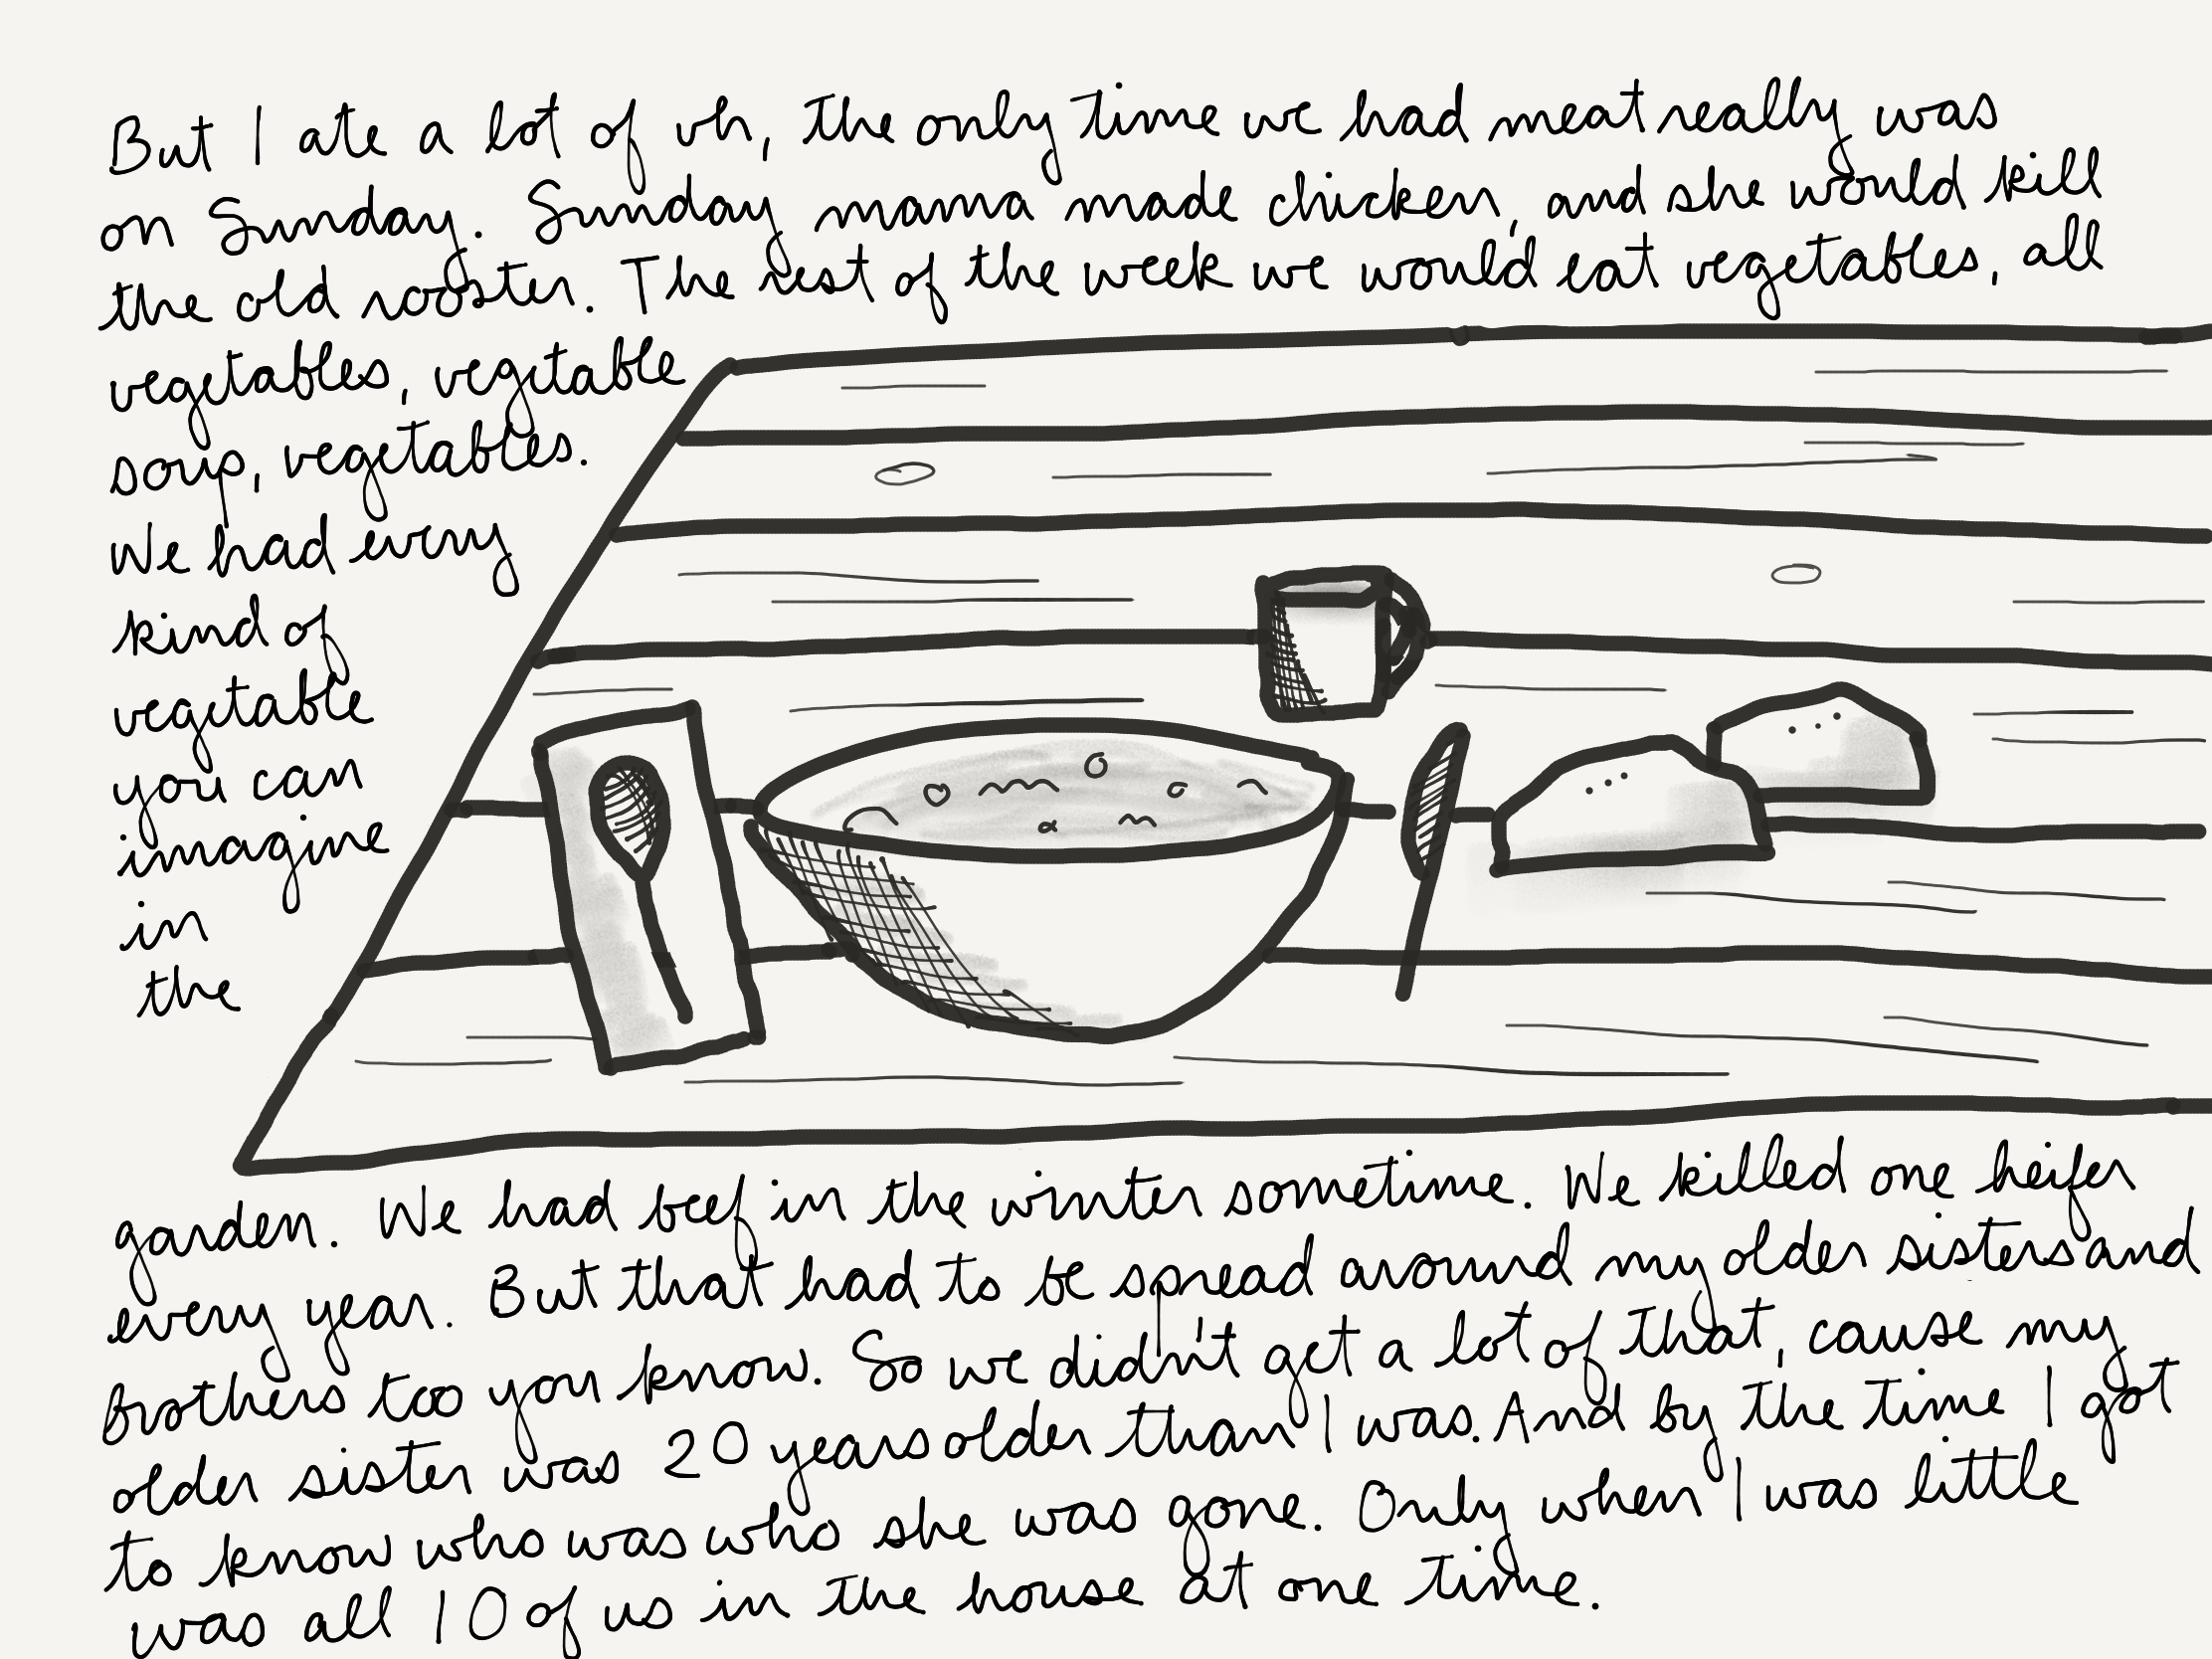 But I ate a lot of uh, the only time we had meat really was
on Sunday. Sunday mama made chicken, and she would kill
the old rooster. The rest of the week we would eat vegetables, all
vegetables, vegetable
soup, vegetables.
We had every
kind of
vegetable
you can
imagine
in
the
garden. We had beef in the winter sometime. We killed one heifer
every year. But that had to be spread around my older sisters and
brothers too you know. So we didn't get a lot of that, cause my
older sister was 20 years older than I was. And by the time I got
to know who was who she was gone. Only when I was little
was all 10 of us in the house at one time.